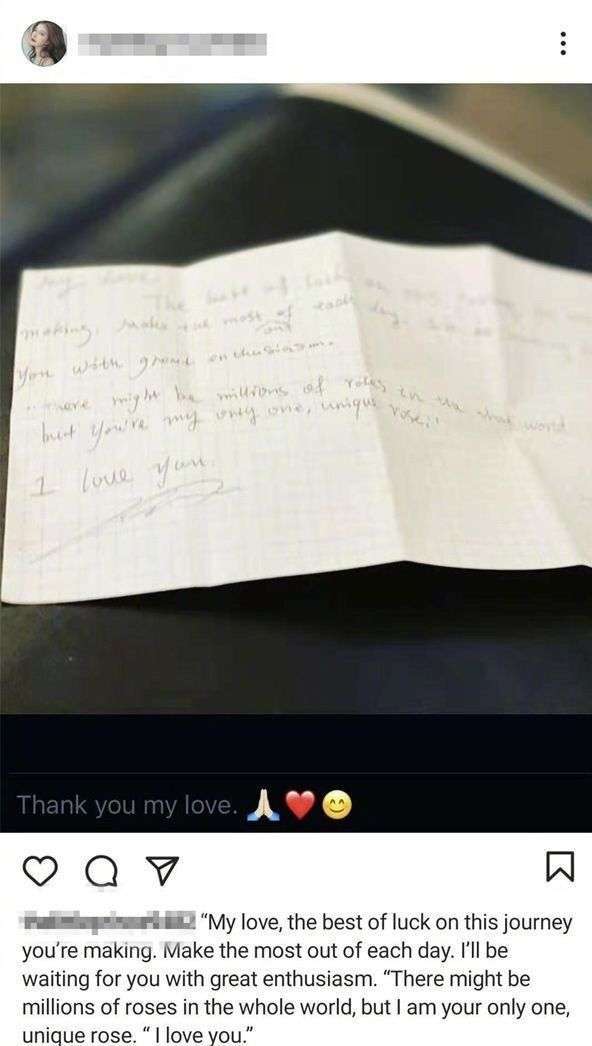 my love
The best of luck on this
making. Make the most of each day.
out
you with great enthusiasm.
"There might be millions of roses in the whole world
but you're my only one, unique rose."
I love you.
Thank you my love. 🙏🏻❤️😊
“My love, the best of luck on this journey
you’re making. Make the most out of each day. I’ll be
waiting for you with great enthusiasm. “There might be
millions of roses in the whole world, but I am your only one,
unique rose. “ I love you.”